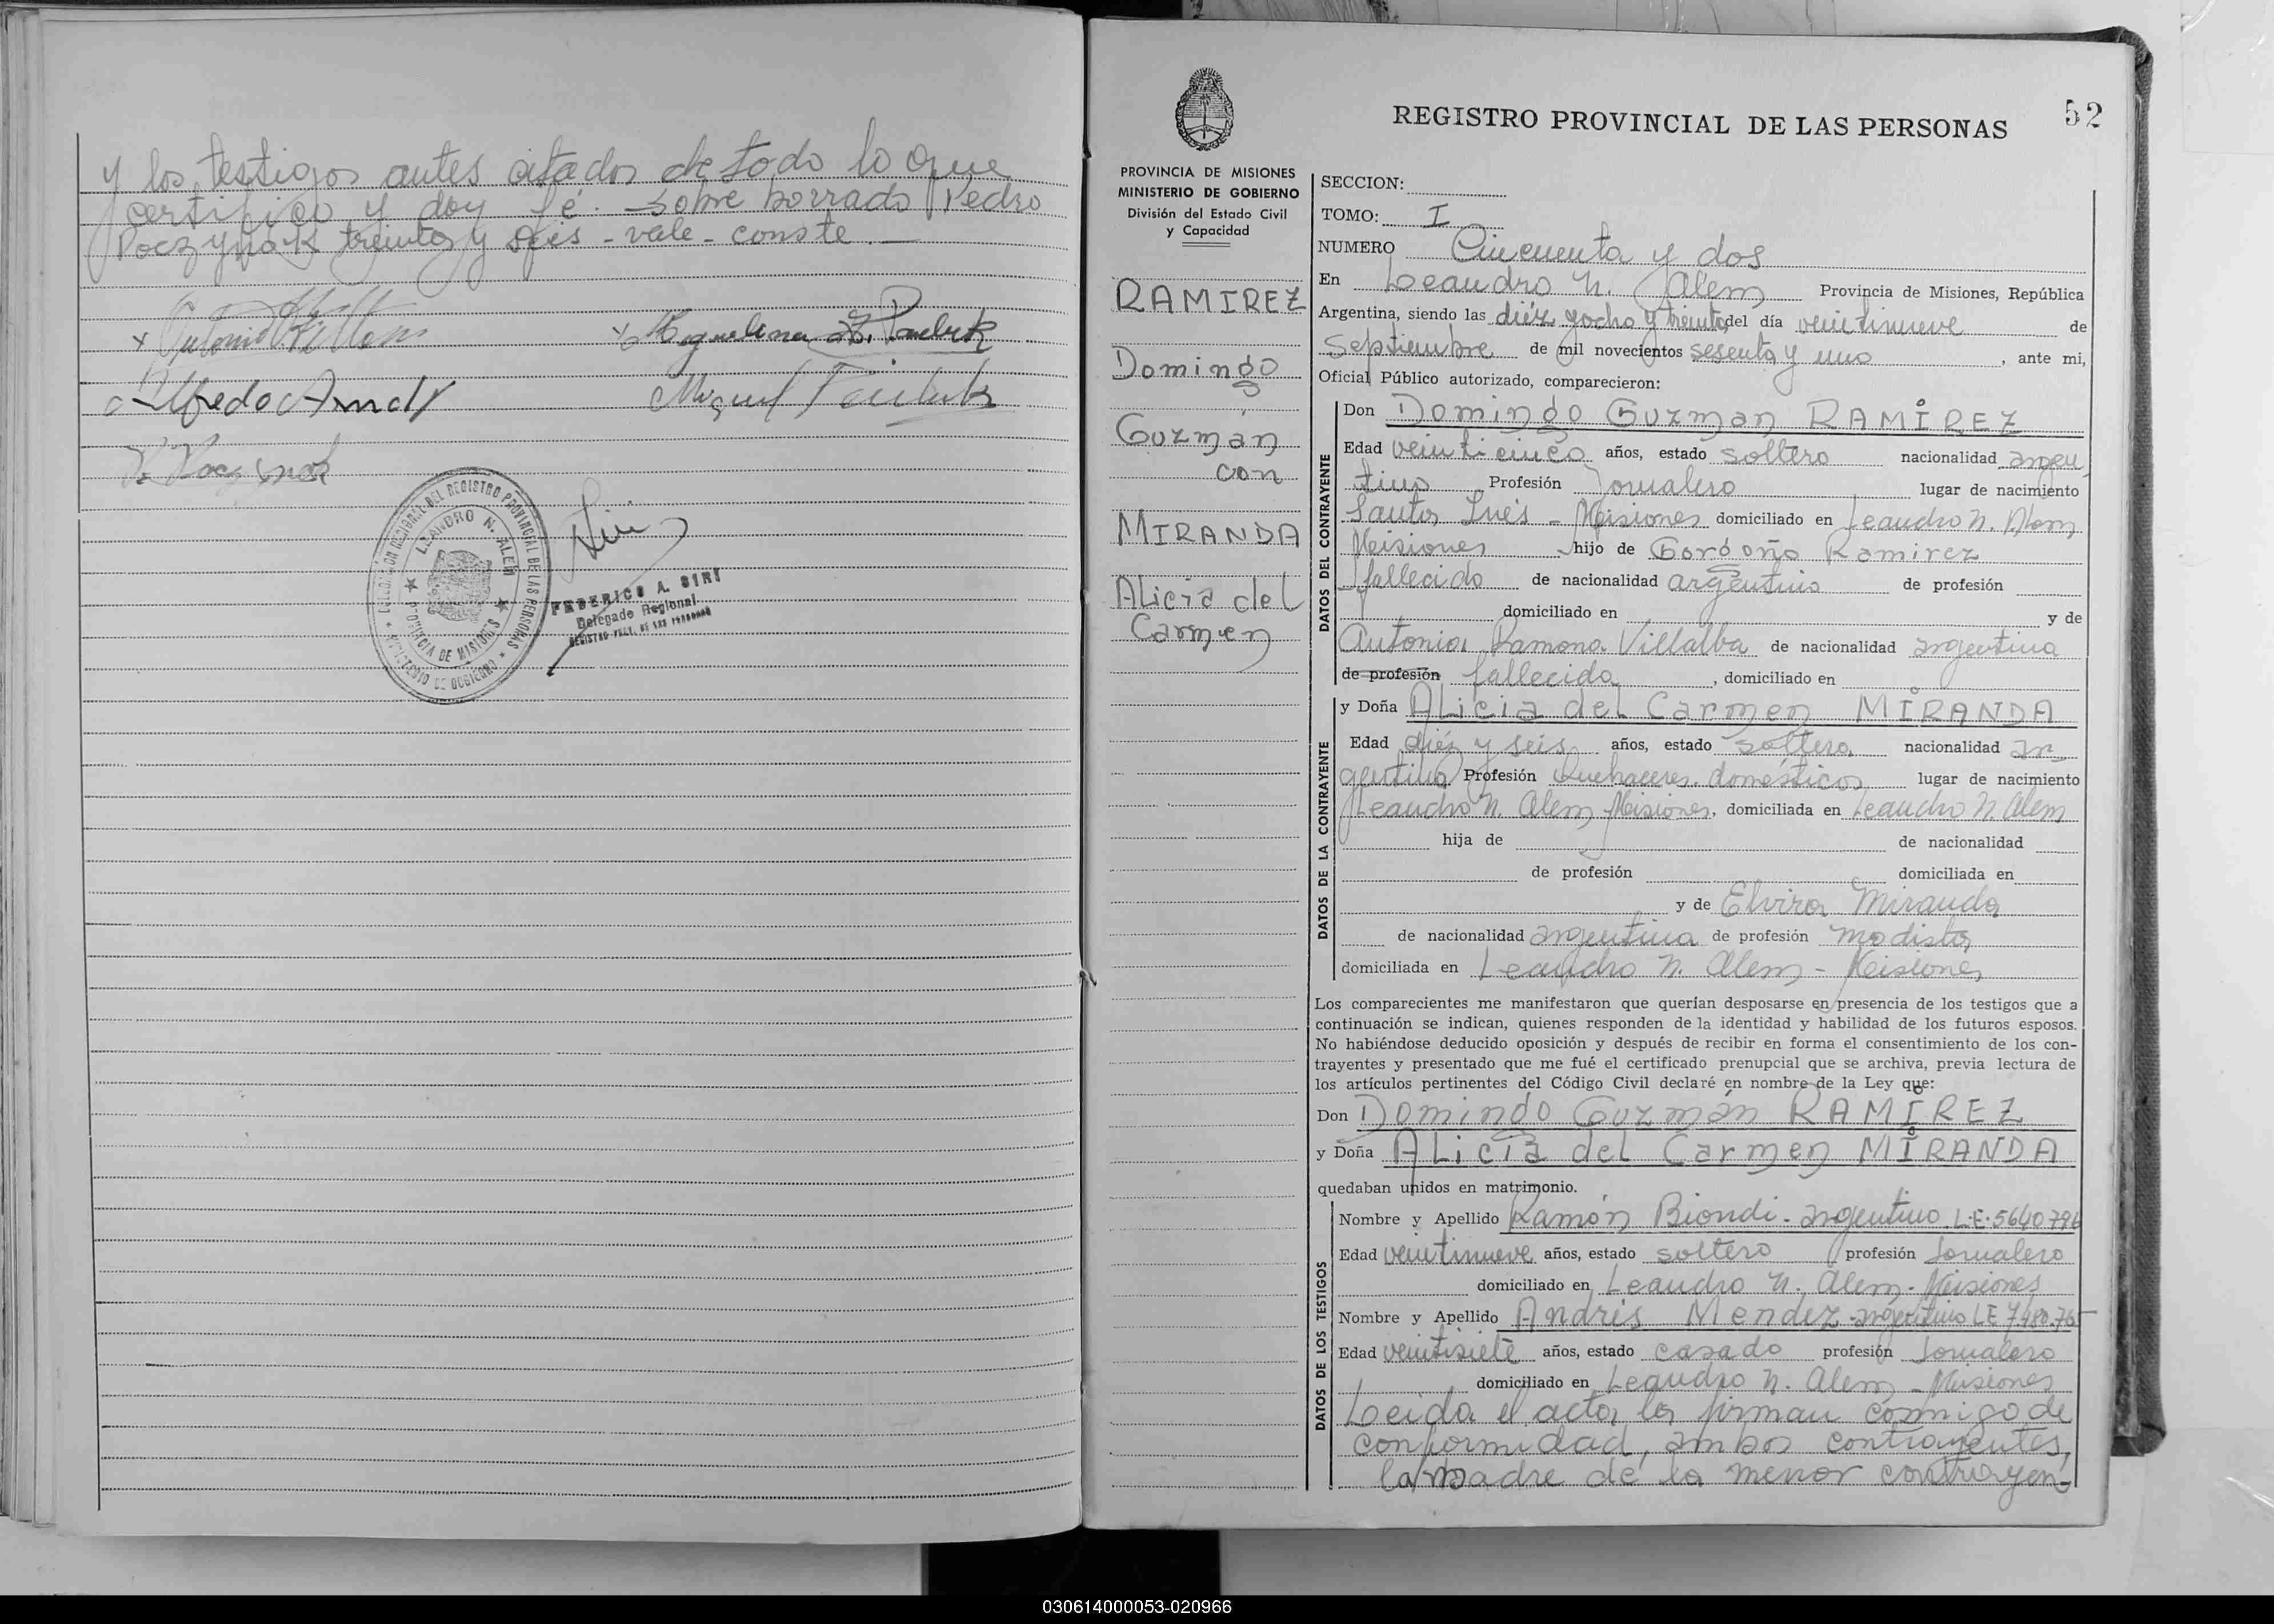 y los testigos antes citados de todo lo que
certifico y doy fé. - Sobre borrado Pedro
Poczynak treinta y seis - vale - conste. -
x Antonio
x Miguelina
Alfredo Arndt
Miguel
LEANDRO N. ALEM
PROVINCIA DE MISIONES
MINISTERIO DE GOBIERNO
FEDERICO A. SIRI
Delegado Regional
REGISTRO PROV. DE LAS PERSONAS
52
REGISTRO PROVINCIAL DE LAS PERSONAS
PROVINCIA DE MISIONES
MINISTERIO DE GOBIERNO
División del Estado Civil
y Capacidad
RAMIREZ
Domingo
Guzmán
con
MIRANDA
Alicia del
Carmen
SECCION:
TOMO: I
NUMERO Cincuenta y dos
En Leandro N. Alem Provincia de Misiones, República
Argentina, siendo las diéz y ocho y treinta del día veintinueve de
Septiembre de mil novecientos sesenta y uno, ante mi,
Oficial Público autorizado, comparecieron:
DATOS DEL CONTRAYENTE
Don Domingo Guzman RAMIREZ
Edad veinticinco años, estado soltero nacionalidad argen
tino Profesión Jornalero lugar de nacimiento
Santa Inés - Misiones domiciliado en Leandro N. Alem
Misiones hijo de Ramirez
fallecido de nacionalidad argentino de profesión
domiciliado en y de
Antonia Ramona Villalba de nacionalidad argentina
de profesión fallecida, domiciliado en
DATOS DE LA CONTRAYENTE
y Doña Alicia del Carmen MIRANDA
Edad diéz y seis años, estado soltera nacionalidad ar
gentina Profesión Quehaceres domésticos lugar de nacimiento
Leandro N. Alem Misiones, domiciliada en Leandro N. Alem
hija de de nacionalidad
de profesión domiciliada en
y de Elvira Miranda
de nacionalidad argentina de profesión modista
domiciliada en Leandro N. Alem - Misiones
Los comparecientes me manifestaron que querían desposarse en presencia de los testigos que a
continuación se indican, quienes responden de la identidad y habilidad de los futuros esposos.
No habiéndose deducido oposición y después de recibir en forma el consentimiento de los con-
trayentes y presentado que me fué el certificado prenupcial que se archiva, previa lectura de
los artículos pertinentes del Código Civil declaré en nombre de la Ley que:
Don Domingo Guzmán RAMIREZ
y Doña Alicia del Carmen MIRANDA
quedaban unidos en matrimonio.
DATOS DE LOS TESTIGOS
Nombre y Apellido Ramón Biondi - argentino L.E. 5640796
Edad veintinueve años, estado soltero profesión Jornalero
domiciliado en Leandro N. Alem - Misiones
Nombre y Apellido Andrés Mendez - argentino LE 7.480.76
Edad veintisiete años, estado casado profesión Jornalero
domiciliado en Leandro N. Alem - Misiones
Leida el acta la firman conmigo de
conformidad, ambos contrayentes,
la madre de la menor contrayen-
030614000053-020966